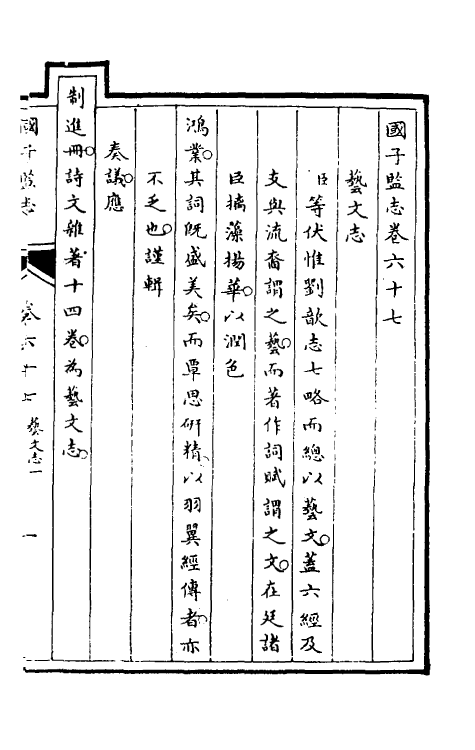 國子監志卷六十七
藝文志
臣等伏惟劉歆志七略而總以藝文蓋六經及
支與流裔謂之藝而著作詞賦謂之文在廷諸
臣摛藻揚華以潤色
鴻業其詞旣盛美矣而覃思硏精以羽翼經傳者亦
不乏也謹輯
奏議應
制進冊詩文雜著十四卷為藝文志
國子監志 卷六十七 藝文志一 一